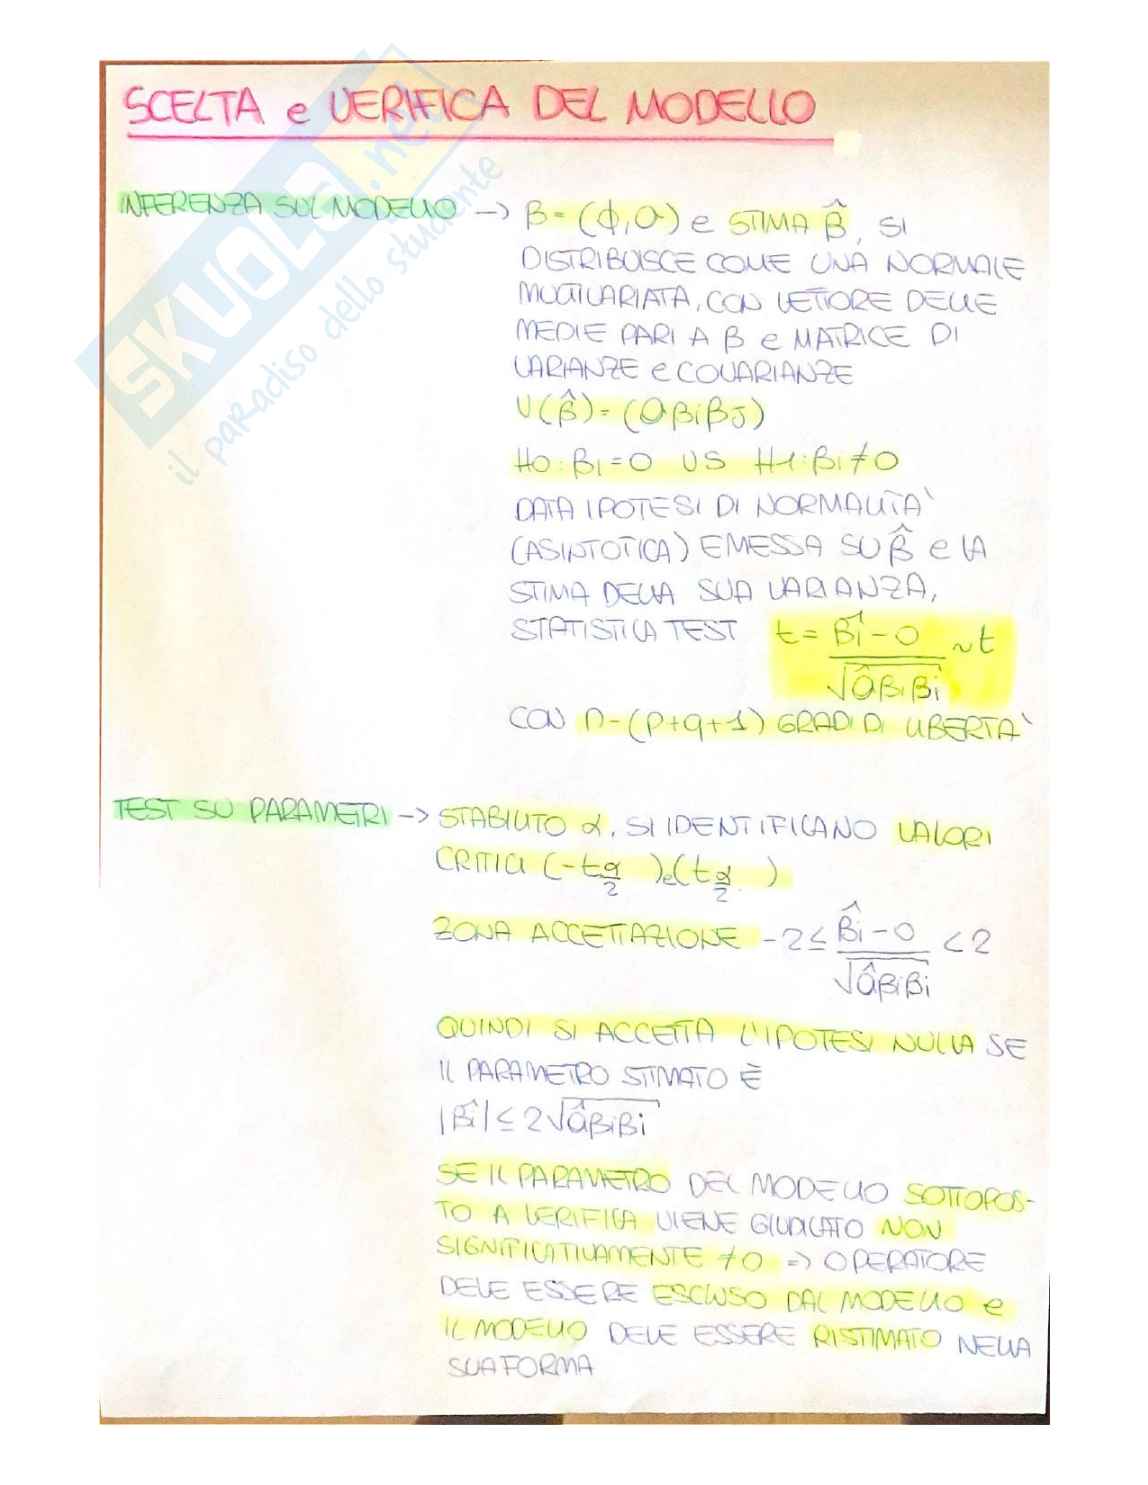 SCELTA e VERIFICA DEL MODELLO
SKUOLA.net
il paradiso dello studente
INFERENZA SUL MODELLO -> β = (ϕ,σ) e STIMA β̂, SI
DISTRIBUISCE COME UNA NORMALE
MULTIVARIATA, CON VETTORE DELLE
MEDIE PARI A β e MATRICE DI
VARIANZE e COVARIANZE
V(β̂) = (σβiβJ)
H0: βi=0 VS H1: βi≠0
DATA IPOTESI DI NORMALITA'
(ASINTOTICA) EMESSA SU β̂ e LA
STIMA DELLA SUA VARIANZA,
STATISTICA TEST t = β̂i-0 / √σ̂βiβi ~ t
CON n-(p+q+1) GRADI DI LIBERTA'
TEST SU PARAMETRI -> STABILITO α, SI IDENTIFICANO VALORI
CRITICI (-tα/2) e (tα/2)
ZONA ACCETTAZIONE -2 ≤ β̂i-0 / √σ̂βiβi < 2
QUINDI SI ACCETTA L'IPOTESI NULLA SE
IL PARAMETRO STIMATO È
|β̂i| ≤ 2√σ̂βiβi
SE IL PARAMETRO DEL MODELLO SOTTOPOS-
TO A VERIFICA VIENE GIUDICATO NON
SIGNIFICATIVAMENTE ≠0 => OPERATORE
DEVE ESSERE ESCLUSO DAL MODELLO e
IL MODELLO DEVE ESSERE RISTIMATO NELLA
SUA FORMA